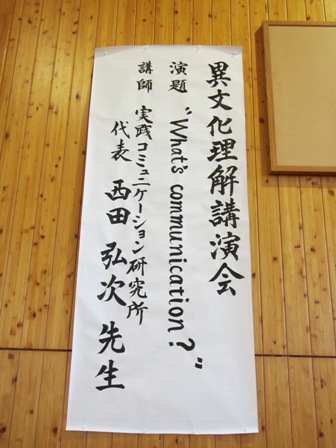 異文化理解講演会
演題 "What's communication?"
講師 実践コミュニケーション研究所
代表 西田 弘次 先生